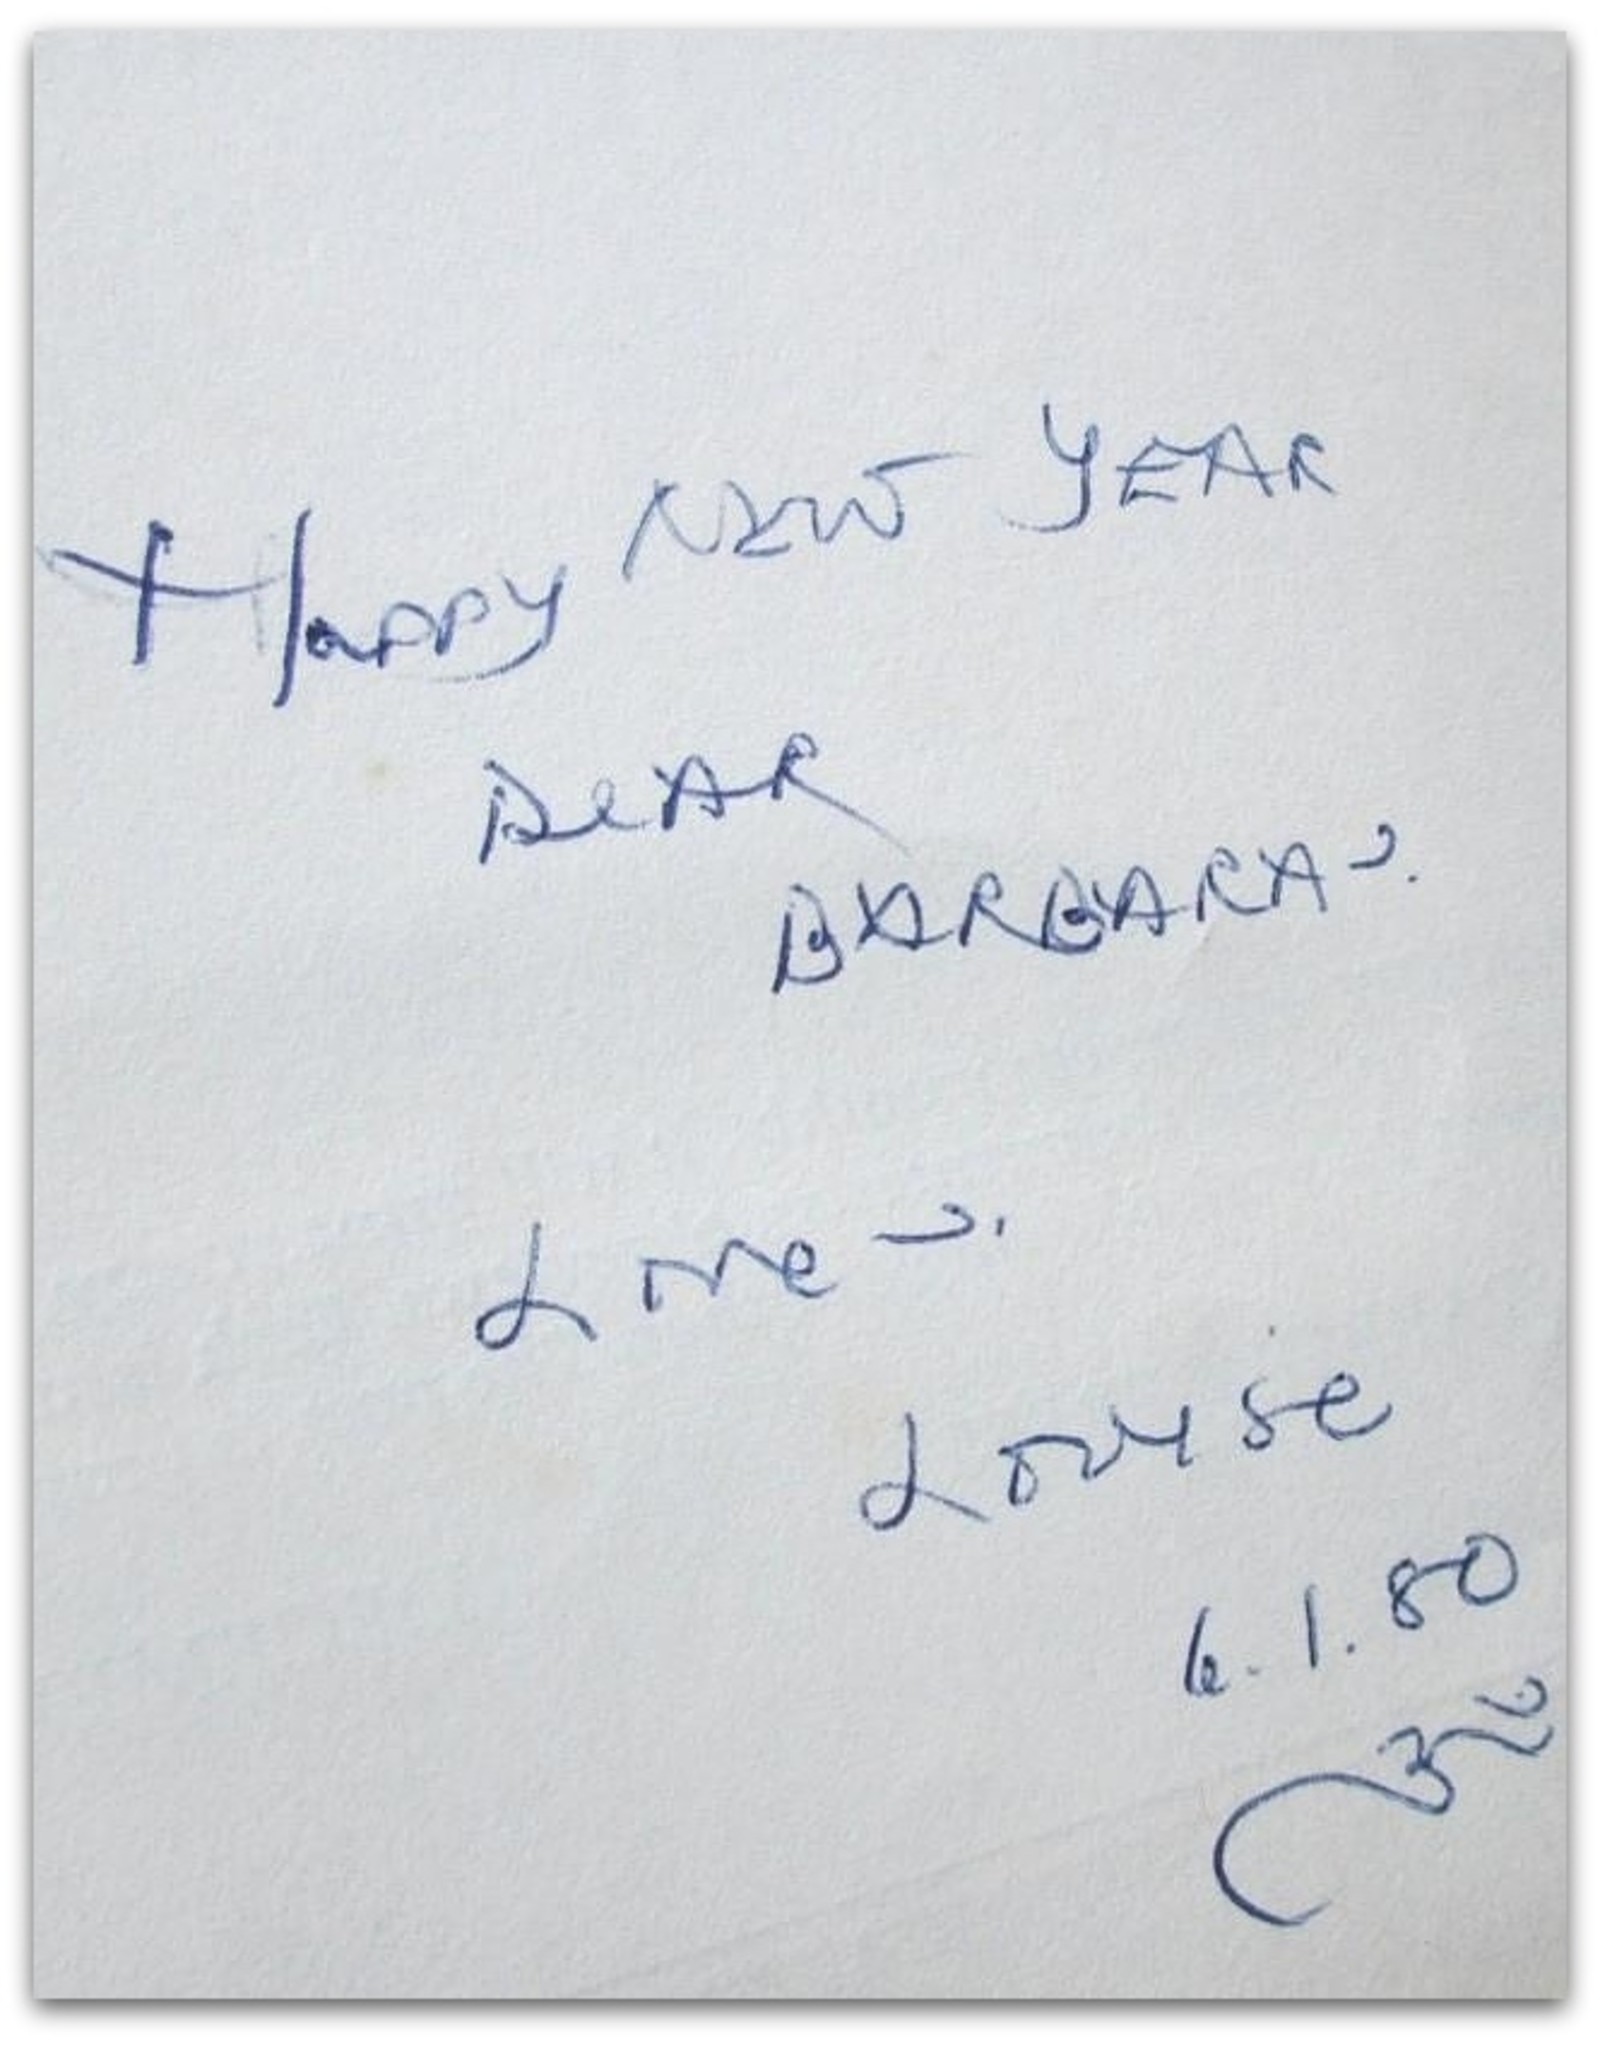 Happy NEW YEAR
DeAR
BARBARA -.
Love -.
Louise
6.1.80